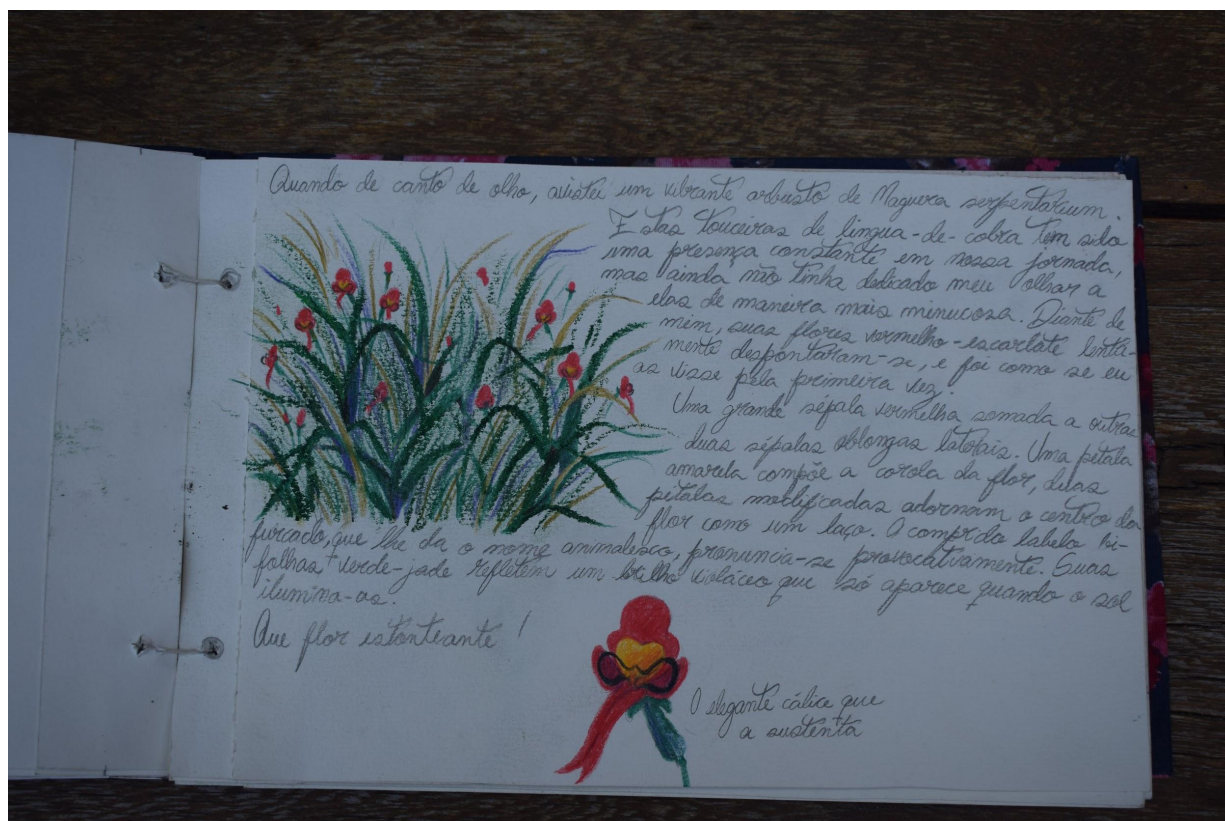 Quando de canto de olho, avistei um vibrante arbusto de Maguera serpentarium.
Estas touceiras de lingua-de-cobra tem sido
uma presença constante em nossa jornada,
mas ainda não tinha dedicado meu olhar a
elas de maneira mais minucosa. Diante de
mim, suas flores vermelho-escarlate lenta-
mente despontaram-se, e foi como se eu
as visse pela primeira vez.
Uma grande sépala vermelha somada a outras
duas sépalas oblongas laterais. Uma pétala
amarela compõe a corola da flor, duas
pétalas modificadas adornam o centro da
flor como um laço. O comprdo labelo bi-
furcado, que lhe da o nome animalesco, pronuncia-se provocativamente. Suas
folhas verde-jade refletem um brilho violáceo que só aparece quando o sol
ilumina-as.
Que flor estonteante!
O elegante cálice que
a sustenta